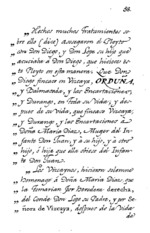 86.
„Hechos muchos Tratamientos so-
„bre ello (dice) aseguraron el Pleyto
„con Don Diego, y Don Lope su hijo que
„acuciaba a Don Diego, que hiciese es-
„te Pleyto en esta manera: Que Don
„Diego fincase en Vizcaya, ORDUÑA
„y Balmaseda, y las Encartaciones,
„y Durango, en toda su vida; y des-
„pues de su vida, que fincase Vizcaya,
„y Durango, y las Encartaciones a
„Doña Maria Diaz, Muger del In-
„fante Don Juan, y a su hijo, y a otro
„hijo, ó hija que ella obiese del Infan-
„te Don Juan.
„Los Vizcaynos, hicieron solemne
„homenage a Doña Maria Diaz, que
„la Tomarian por heredera derecha,
„del Conde Don Lope su Padre, y por Se-
„ñora de Vizcaya, despues de la vida
de